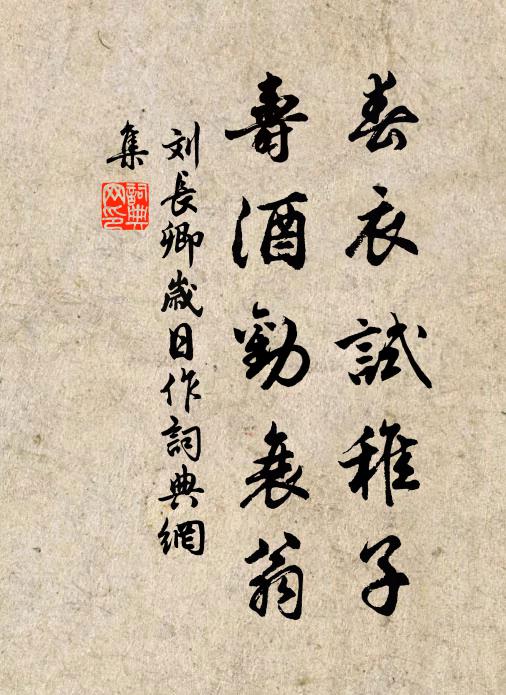 春衣試稚子
壽酒勸衰翁
刘長卿歲日作詞典網
集
詞典網印